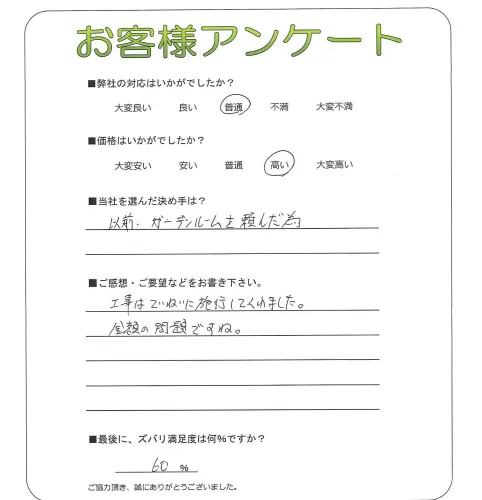 お客様アンケート
■弊社の対応はいかがでしたか？
大変良い 良い 普通 不満 大変不満
■価格はいかがでしたか？
大変安い 安い 普通 高い 大変高い
■当社を選んだ決め手は？
以前、ガーデンルームを頼んだ為
■ご感想・ご要望などをお書き下さい。
工事はていねいに施行してくれました。
金額の問題ですね。
■最後に、ズバリ満足度は何%ですか？
60 %
ご協力頂き、誠にありがとうございました。